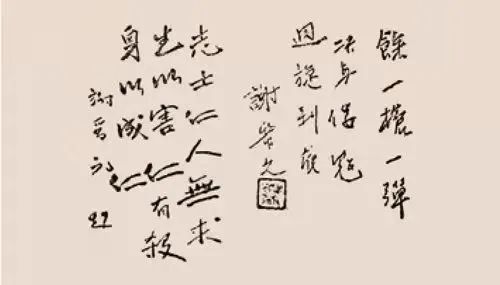 餘一槍一彈
決與倭寇
週旋到底
謝晉元
志士仁人無求
生以害仁有殺
身以成仁
謝晉元